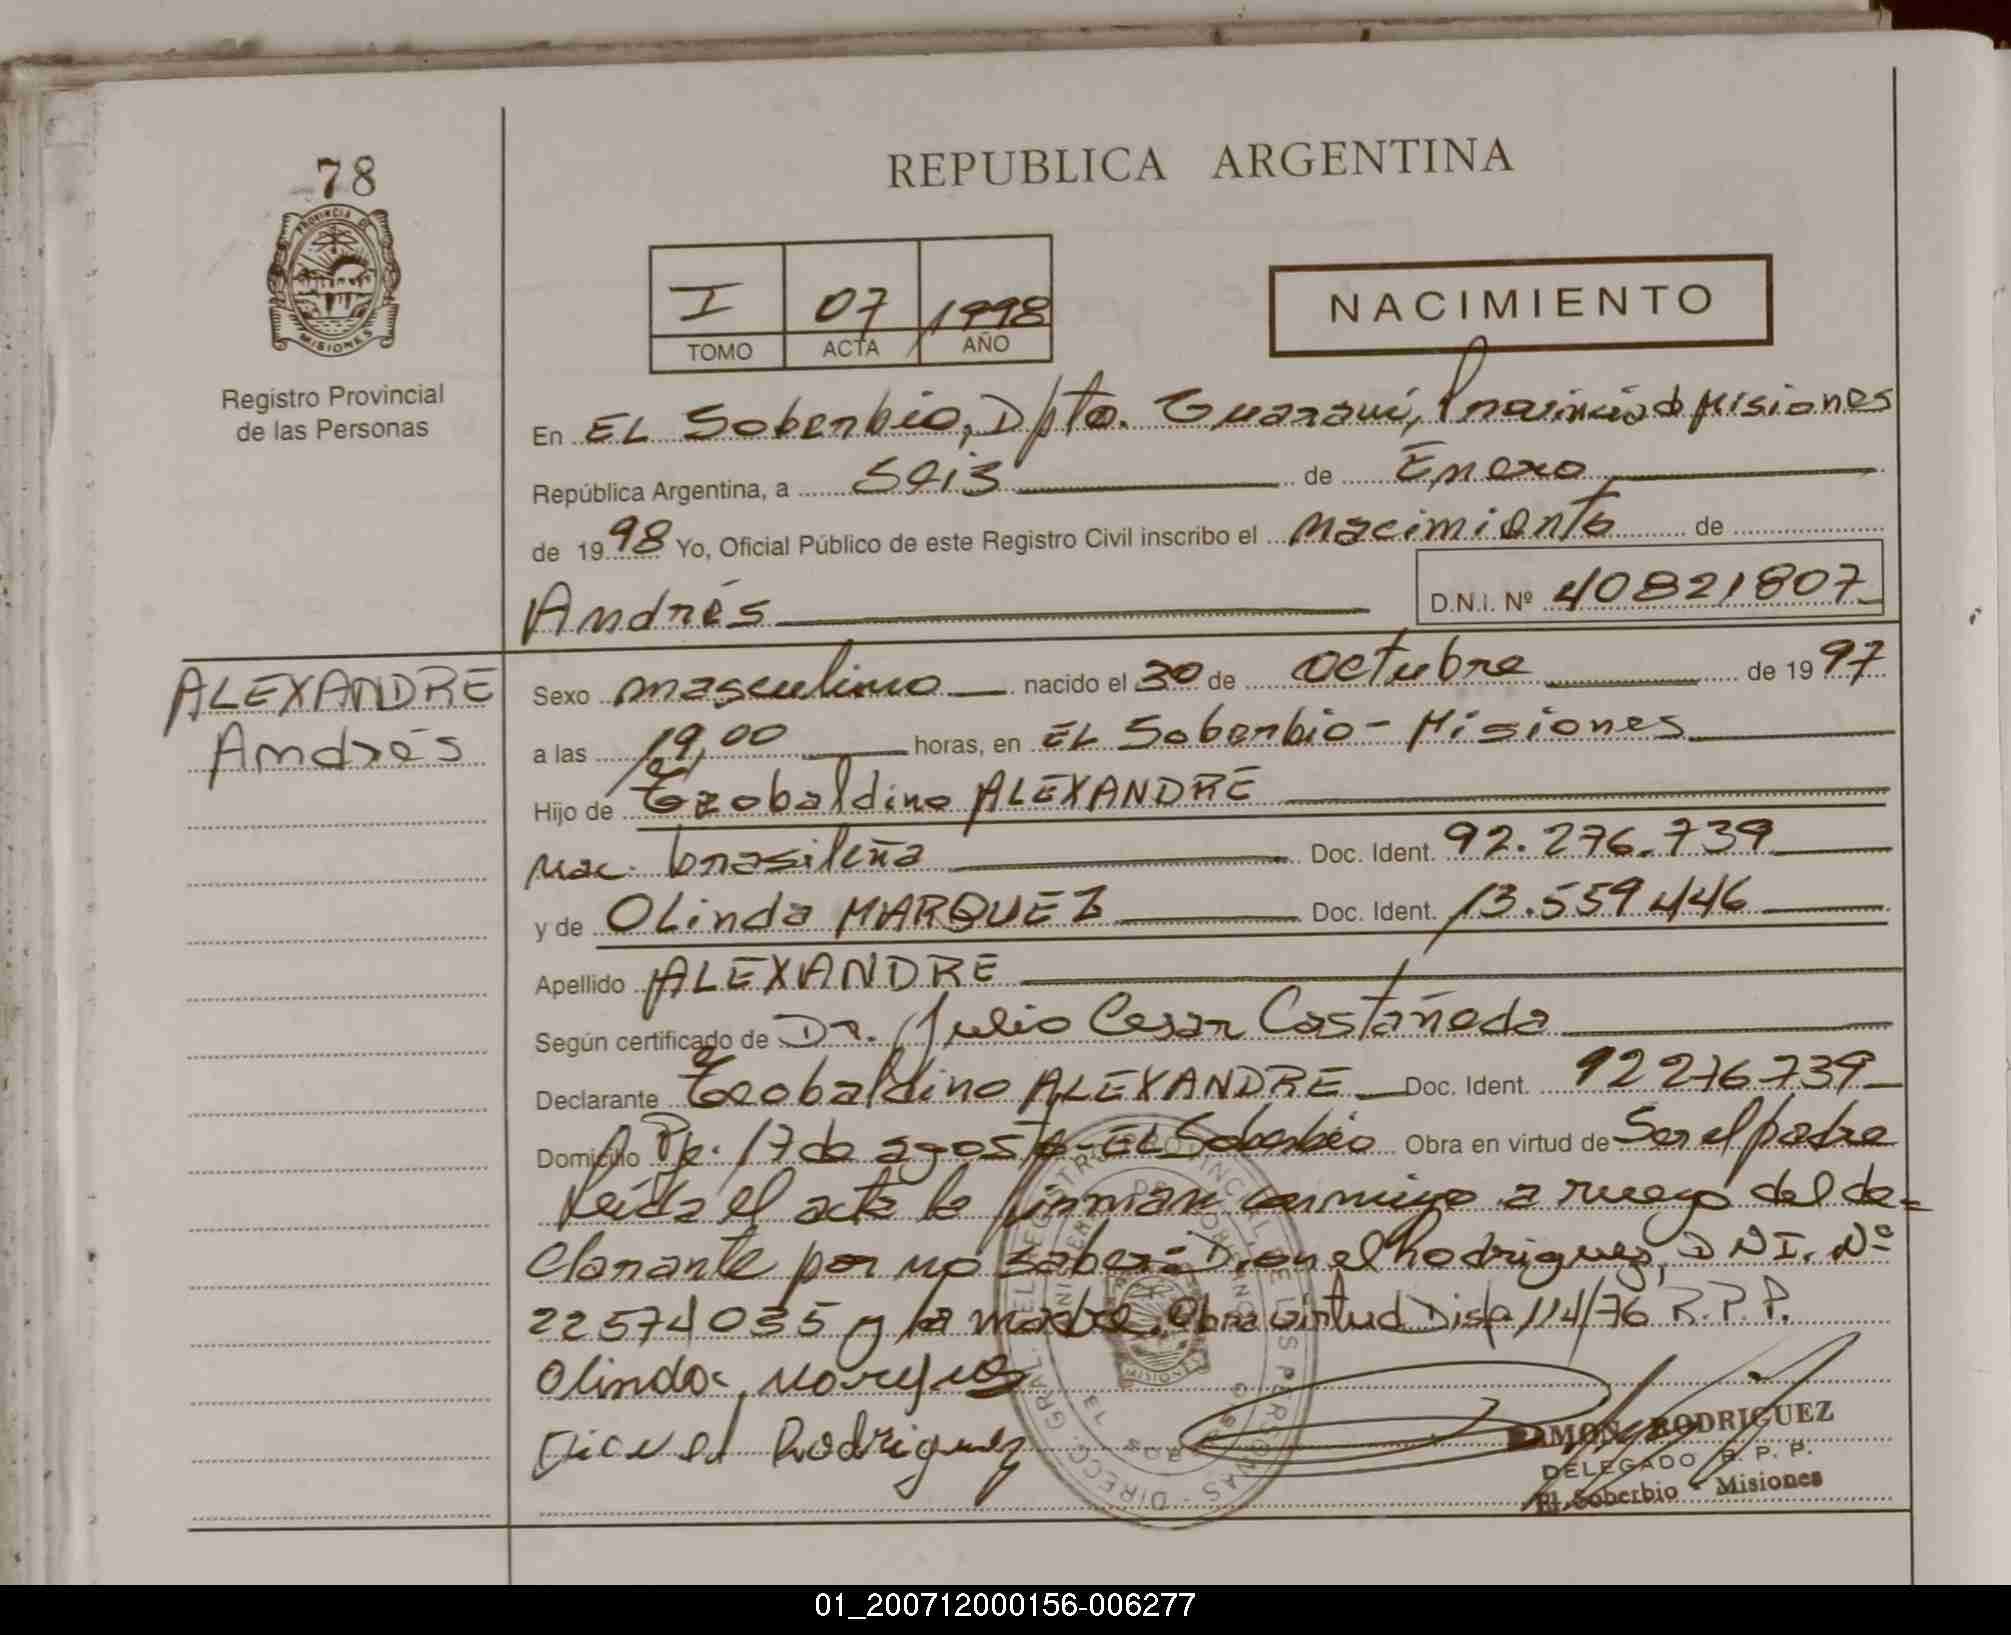 78
PROVINCIA DE
MISIONES
Registro Provincial
de las Personas
REPUBLICA ARGENTINA
I 07 1998
TOMO ACTA AÑO
NACIMIENTO
En EL Soberbio, Dpto. Guaraní, Provincia de Misiones
República Argentina, a Seis de Enero
de 1998 Yo, Oficial Público de este Registro Civil inscribo el nacimiento de
Andrés D.N.I. Nº 40821807
ALEXANDRE
Andrés
Sexo masculino nacido el 30 de octubre de 1997
a las 19,00 horas, en EL Soberbio - Misiones
Hijo de Teobaldino ALEXANDRE
nac. brasileña Doc. Ident. 92.276.739
y de OLinda MARQUEZ Doc. Ident. 13.559446
Apellido ALEXANDRE
Según certificado de Dr. Julio Cesar Castañeda
Declarante Teobaldino ALEXANDRE Doc. Ident. 92276739
Domicilio 17 de agosto - EL Soberbio Obra en virtud de Ser el padre
Leída el acta la firman conmigo a ruego del de=
clarante por no saber: Dionel Rodriguez, DNI. Nº
22574035 y la madre. Obra virtud Disp. 114/76 R.P.P.
Olinda Marquez
Rodriguez
RAMON RODRIGUEZ
DELEGADO R. P. P.
El Soberbio - Misiones
01_200712000156-006277